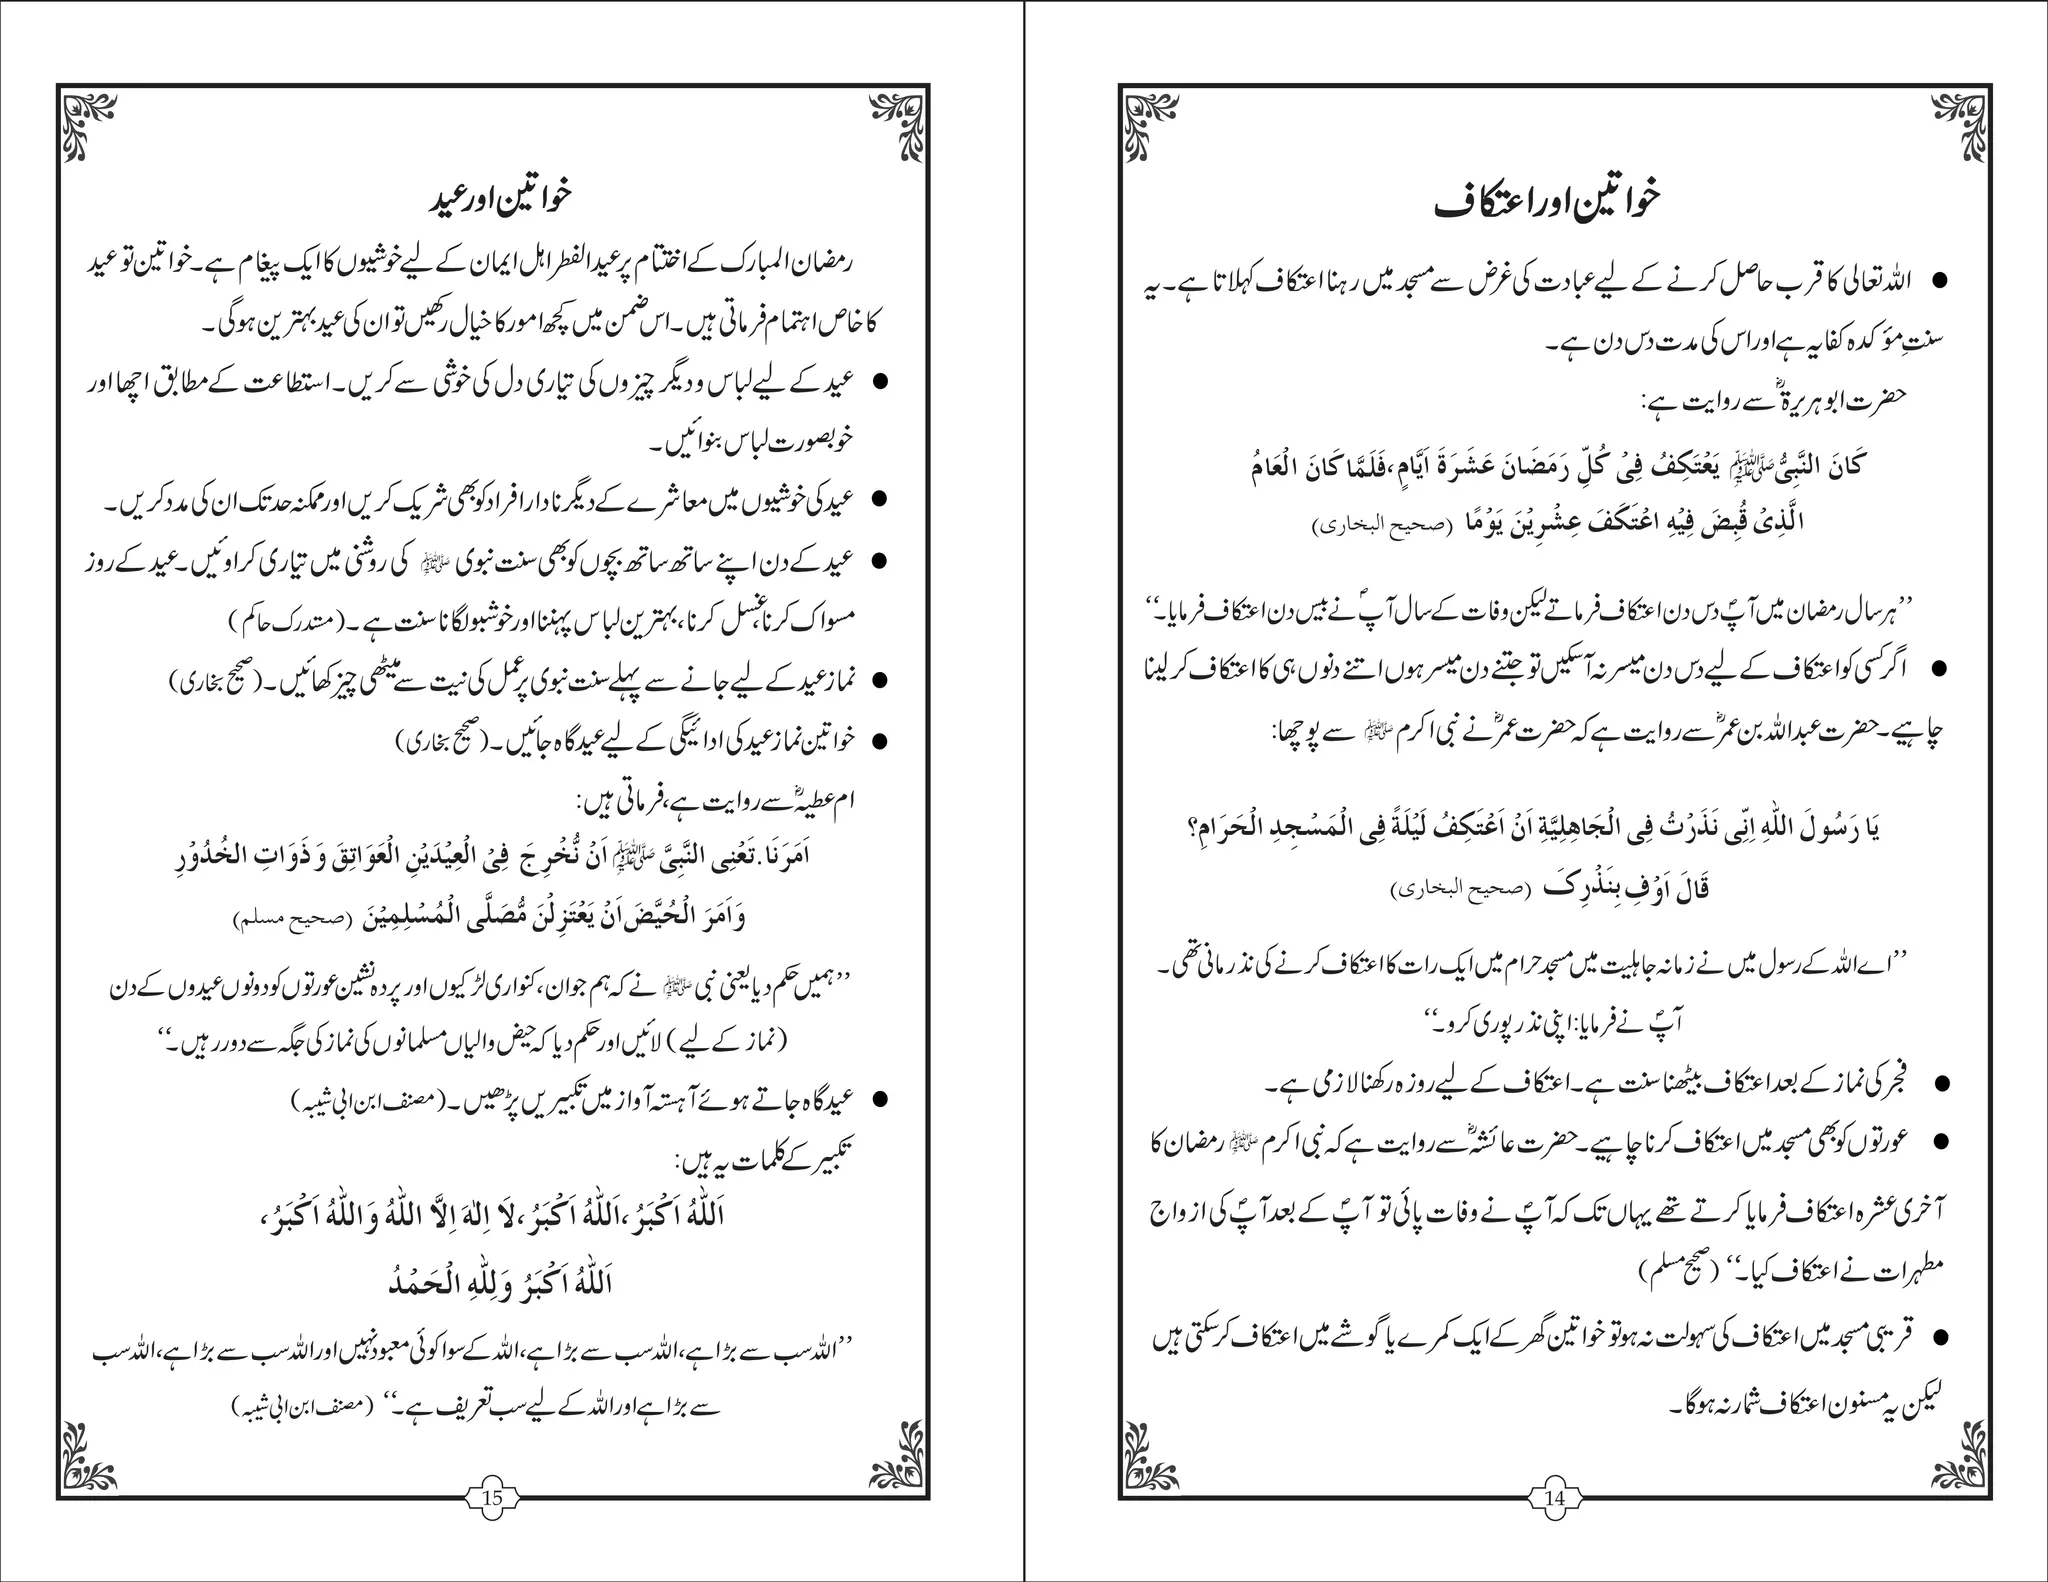 خواتین اور اعتکاف
● اللہ تعالیٰ کا قرب حاصل کرنے کے لیے عبادت کی غرض سے مسجد میں رہنا اعتکاف کہلاتا ہے۔ یہ
سنتِ مؤکدہ کفایہ ہے اور اس کی مدت دس دن ہے۔
حضرت ابوہریرۃؓ سے روایت ہے:
کَانَ النَّبِیُّ ﷺ یَعْتَکِفُ فِیْ کُلِّ رَمَضَانَ عَشَرَۃَ اَیَّامٍ، فَلَمَّا کَانَ الْعَامُ
الَّذِیْ قُبِضَ فِیْہِ اعْتَکَفَ عِشْرِیْنَ یَوْمًا (صحیح البخاری)
’’ہر سال رمضان میں آپؐ دس دن اعتکاف فرماتے لیکن وفات کے سال آپؐ نے بیس دن اعتکاف فرمایا۔‘‘
● اگر کسی کو اعتکاف کے لیے دس دن میسر نہ آسکیں تو جتنے دن میسر ہوں اتنے دنوں ہی کا اعتکاف کر لینا
چاہیے۔ حضرت عبداللہ بن عمرؓ سے روایت ہے کہ حضرت عمرؓ نے نبی اکرم ﷺ سے پوچھا:
یَا رَسُولَ اللہِ اِنِّی نَذَرْتُ فِی الْجَاہِلِیَّۃِ اَنْ اَعْتَکِفُ لَیْلَۃً فِی الْمَسْجِدِ الْحَرَامِ؟
قَالَ اَوْفِ بِنَذْرِکَ (صحیح البخاری)
’’اے اللہ کے رسول میں نے زمانہ جاہلیت میں مسجد حرام میں ایک رات کا اعتکاف کرنے کی نذر مانی تھی۔
آپؐ نے فرمایا: اپنی نذر پوری کرو۔‘‘
● فجر کی نماز کے بعد اعتکاف بیٹھنا سنت ہے۔ اعتکاف کے لیے روزہ رکھنا لازمی ہے۔
● عورتوں کو بھی مسجد میں اعتکاف کرنا چاہیے۔ حضرت عائشہؓ سے روایت ہے کہ نبی اکرم ﷺ رمضان کا
آخری عشرہ اعتکاف فرمایا کرتے تھے یہاں تک کہ آپؐ نے وفات پائی تو آپؐ کے بعد آپؐ کی ازواج
مطہرات نے اعتکاف کیا۔‘‘ (صحیح مسلم)
● قریبی مسجد میں اعتکاف کی سہولت نہ ہو تو خواتین گھر کے ایک کمرے یا گوشے میں اعتکاف کرسکتی ہیں
لیکن یہ مسنون اعتکاف شمار نہ ہوگا۔
14
خواتین اور عید
رمضان المبارک کے اختتام پر عید الفطر اہل ایمان کے لیے خوشیوں کا ایک پیغام ہے۔ خواتین تو عید
کا خاص اہتمام فرماتی ہیں۔ اس ضمن میں کچھ امور کا خیال رکھیں تو ان کی عید بہترین ہوگی۔
● عید کے لیے لباس و دیگر چیزوں کی تیاری دل کی خوشی سے کریں۔ استطاعت کے مطابق اچھا اور
خوبصورت لباس بنوائیں۔
● عید کی خوشیوں میں معاشرے کے دیگر نادار افراد کو بھی شریک کریں اور ممکنہ حد تک ان کی مدد کریں۔
● عید کے دن اپنے ساتھ ساتھ بچوں کو بھی سنت نبوی ﷺ کی روشنی میں تیاری کراوئیں۔ عید کے روز
مسواک کرنا، غسل کرنا، بہترین لباس پہننا اور خوشبو لگانا سنت ہے۔ (مستدرک حاکم)
● نماز عید کے لیے جانے سے پہلے سنت نبوی پر عمل کی نیت سے میٹھی چیز کھائیں۔ (صحیح بخاری)
● خواتین نماز عید کی ادائیگی کے لیے عید گاہ جائیں۔ (صحیح بخاری)
ام عطیہؓ سے روایت ہے، فرماتی ہیں:
اَمَرَنَا. تَعْنِی النَّبِیَّ ﷺ اَنْ نُّخْرِجَ فِیْ الْعِیْدَیْنِ الْعَوَاتِقَ وَ ذَوَاتِ الخُدُوْرِ
وَ اَمَرَ الْحُیَّضَ اَنْ یَعْتَزِلْنَ مُّصَلَّی الْمُسْلِمِیْنَ (صحیح مسلم)
’’ہمیں حکم دیا یعنی نبی ﷺ نے کہ ہم جوان، کنواری لڑکیوں اور پردہ نشین عورتوں کو دونوں عیدوں کے دن
(نماز کے لیے) لائیں اور حکم دیا کہ حیض والیاں مسلمانوں کی نماز کی جگہ سے دور رہیں۔‘‘
● عید گاہ جاتے ہوئے آہستہ آواز میں تکبیریں پڑھیں۔ (مصنف ابن ابی شیبہ)
تکبیر کے کلمات یہ ہیں:
اَللّٰہُ اَکْبَرُ، اَللّٰہُ اَکْبَرُ، لَا اِلٰہَ اِلَّا اللّٰہُ وَ اللّٰہُ اَکْبَرُ،
اَللّٰہُ اَکْبَرُ وَ لِلّٰہِ الْحَمْدُ
’’اللہ سب سے بڑا ہے، اللہ سب سے بڑا ہے، اللہ کے سوا کوئی معبود نہیں اور اللہ سب سے بڑا ہے، اللہ سب
سے بڑا ہے اور اللہ کے لیے سب تعریف ہے۔‘‘ (مصنف ابن ابی شیبہ)
15